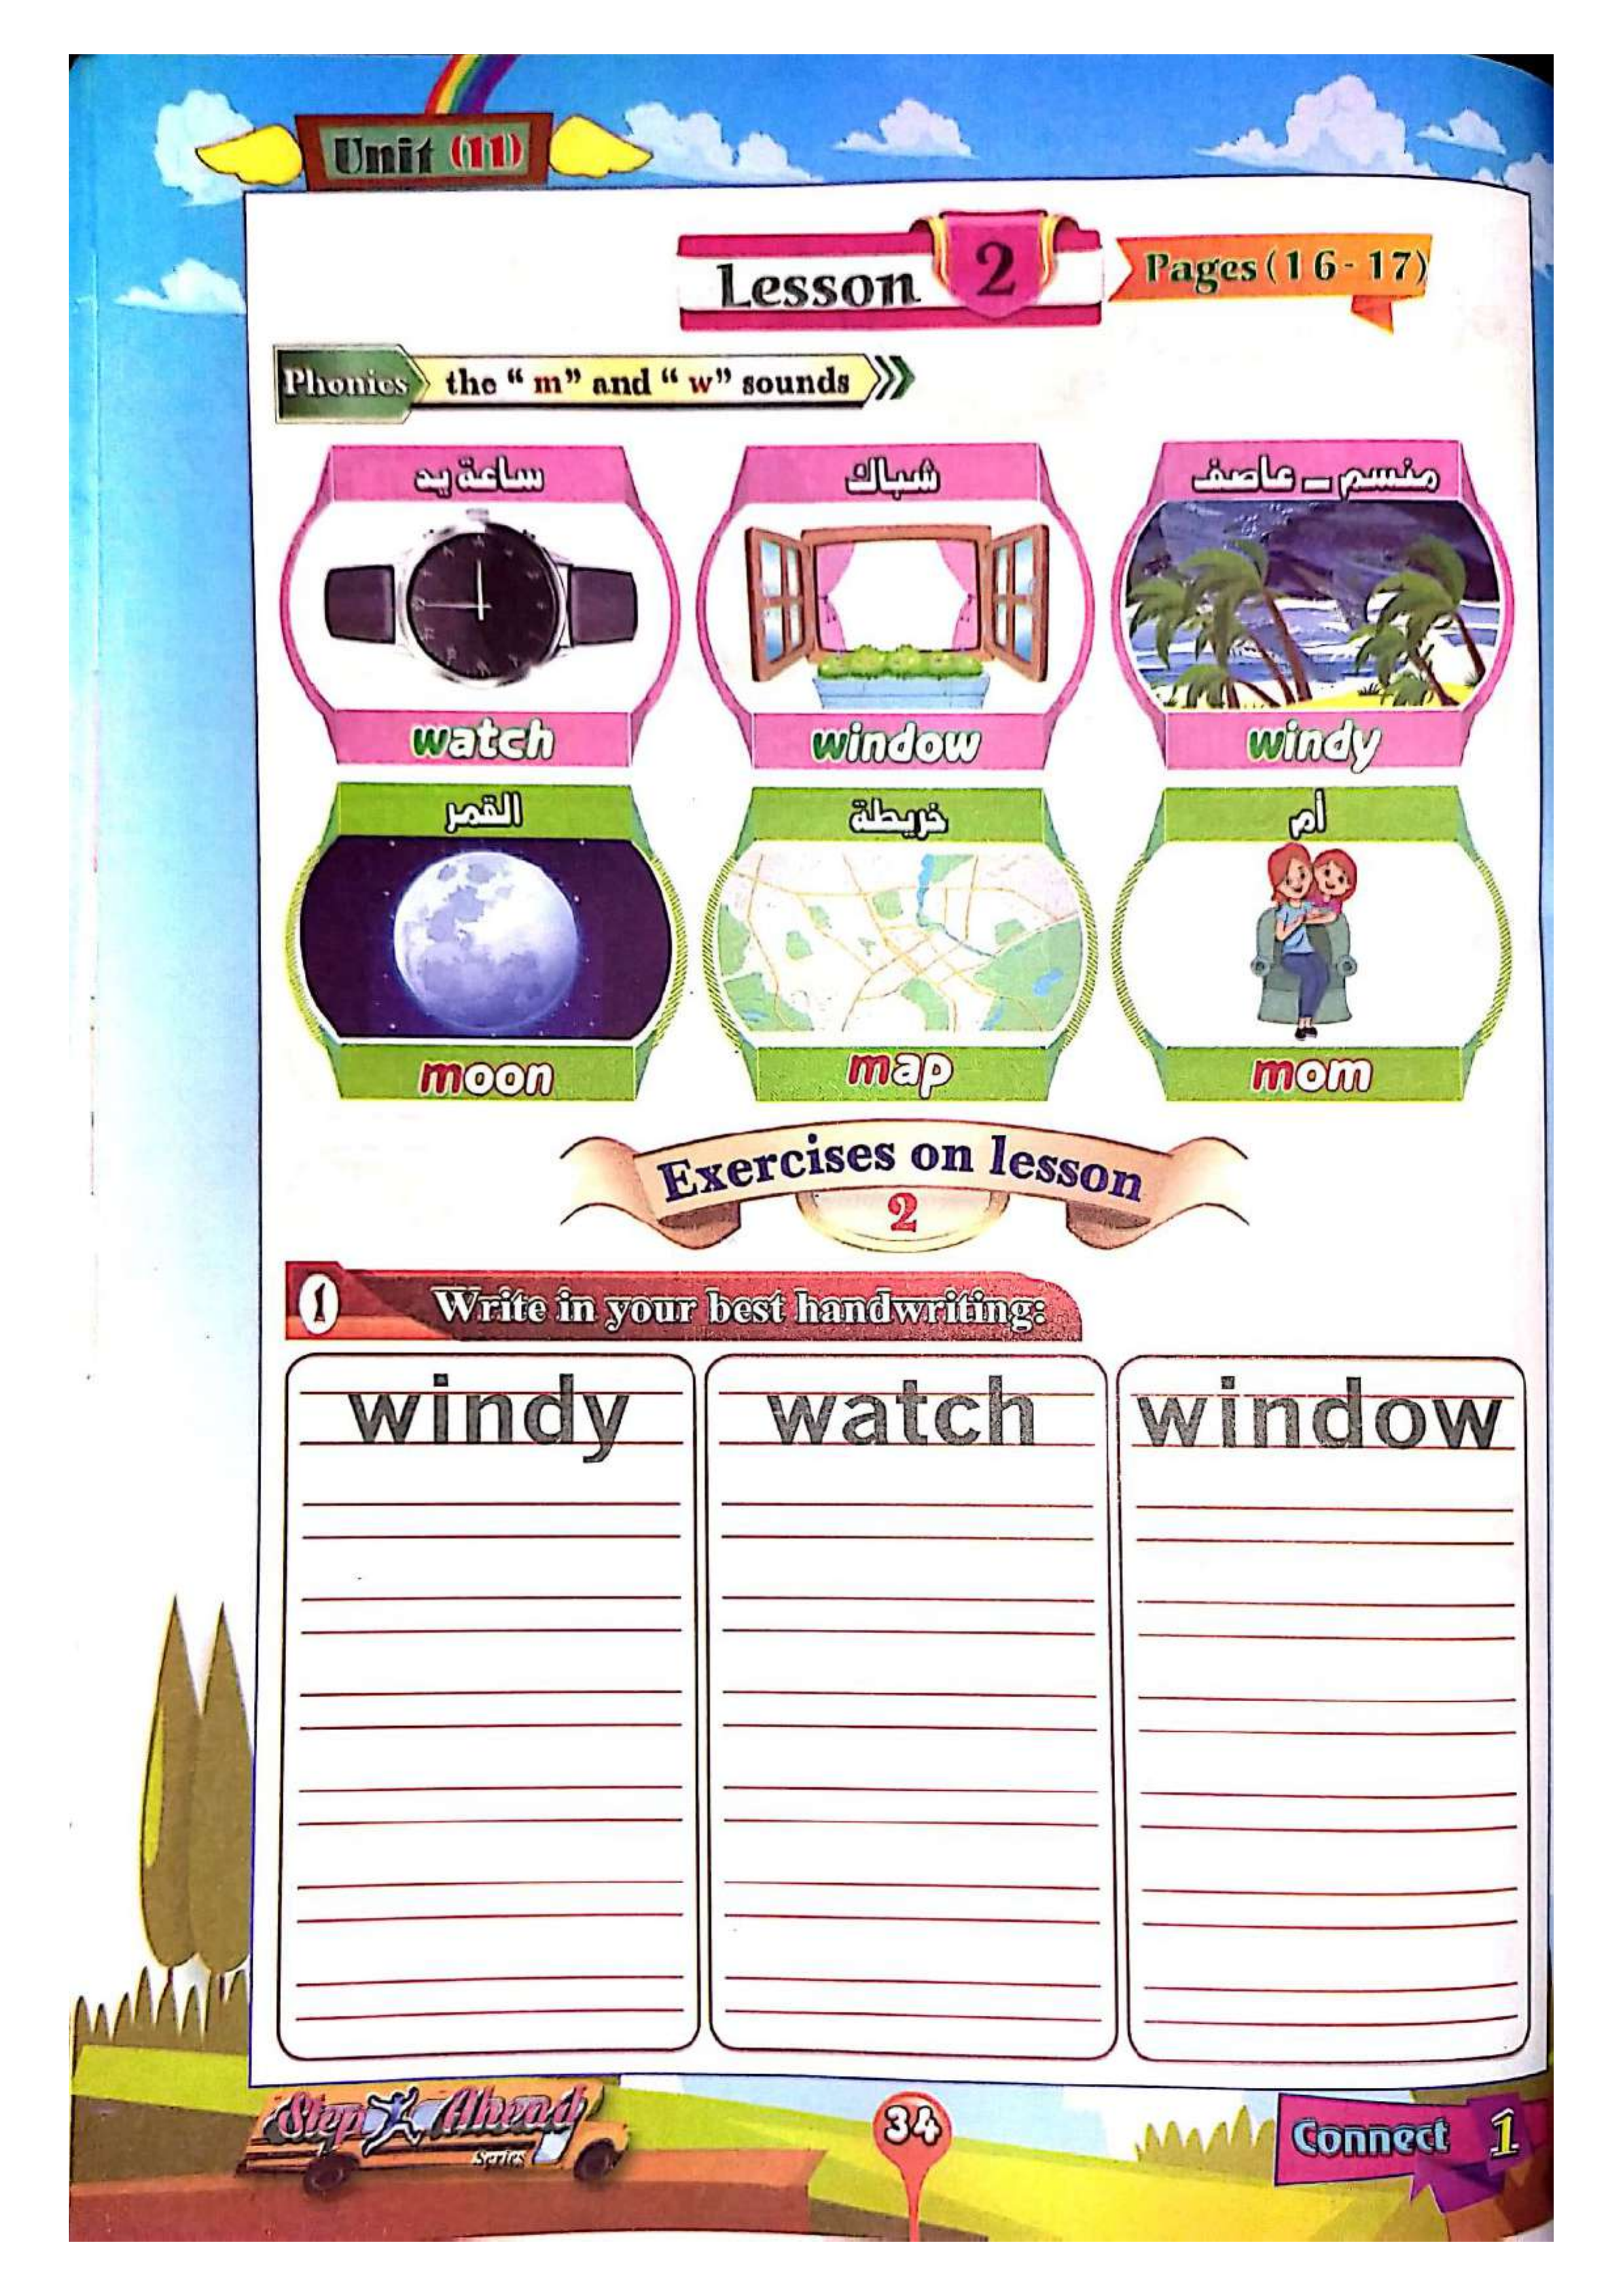 Unit (11)
Lesson 2
Pages (16-17)
Phonics the “m” and “w” sounds
ساعة يد
شباك
منسم - عاصف
watch
window
windy
القمر
خريطة
أم
moon
map
mom
Exercises on lesson
2
1 Write in your best handwriting:
windy
watch
window
Step Ahead
Series
34
Connect 1